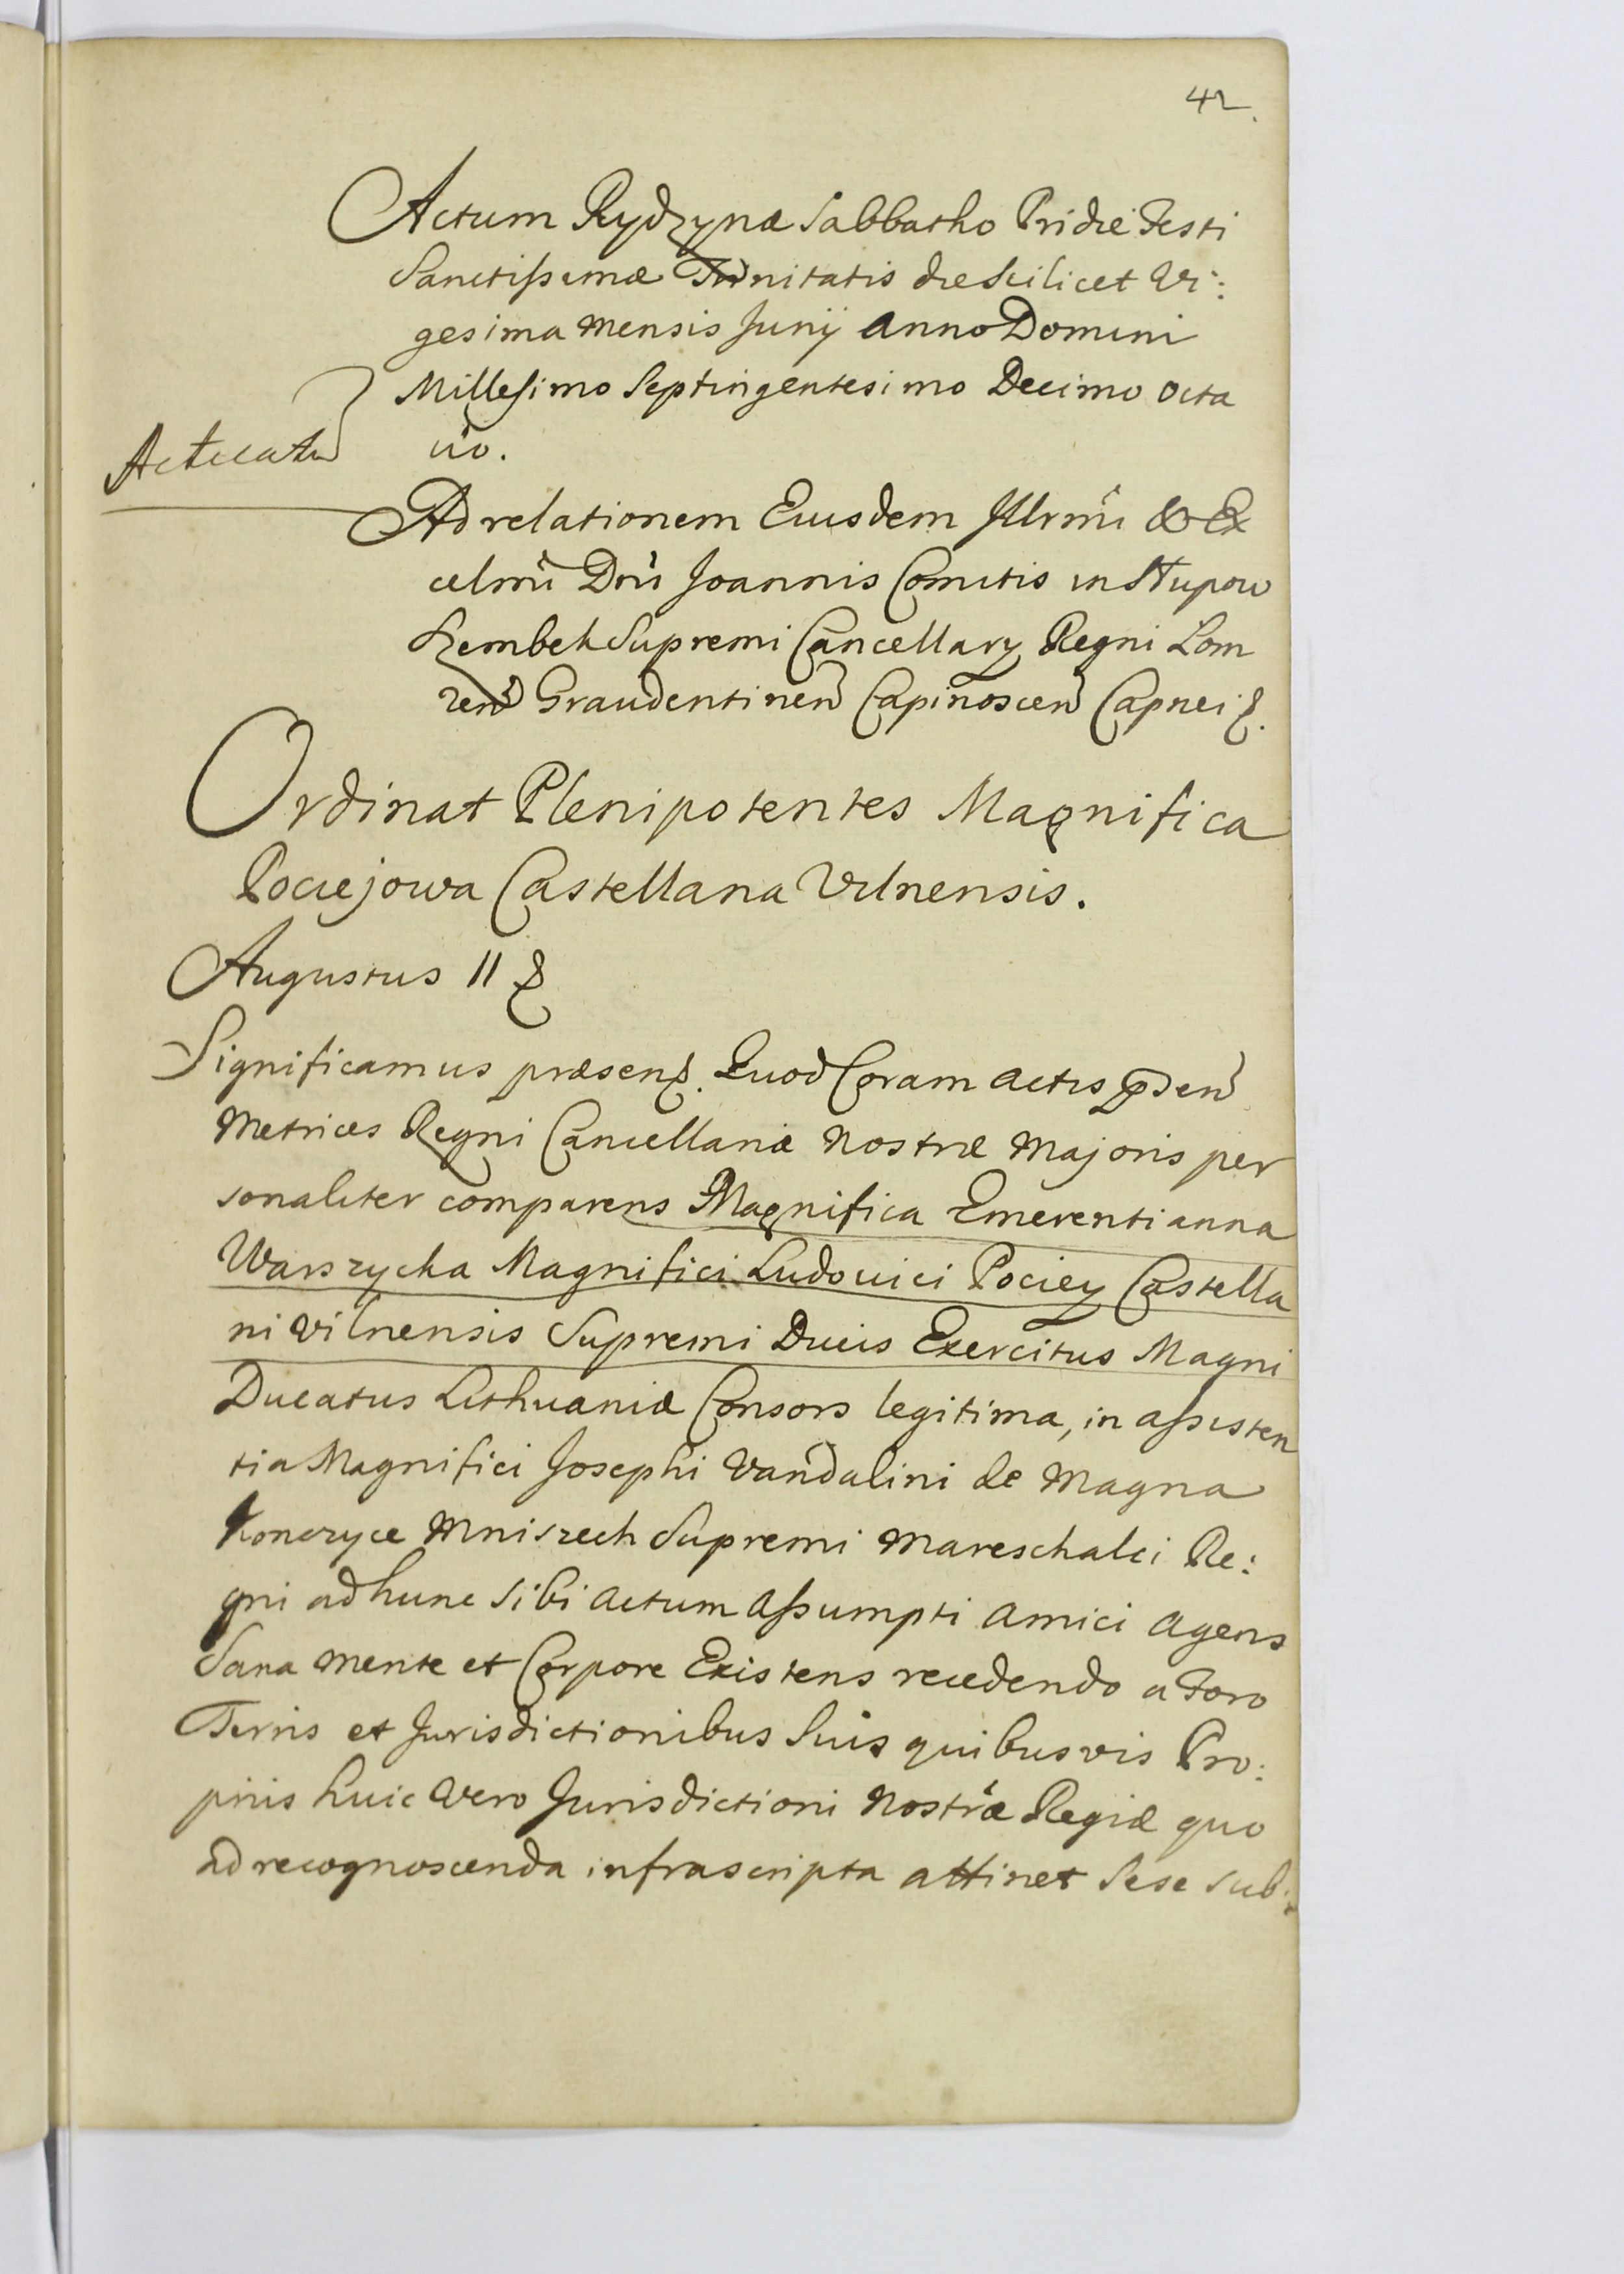 42.
Actum Rydzynæ Sabbatho Pridie Festi
Sanctissimæ Trinitatis die Scilicet Vi:
gesima Mensis Junij Anno Domini
Millesimo Septingentesimo Decimo Octa
vo.
Acticatū
Ad relationem Eiusdem Illrmi & Ex
celmi Dni Joannis Comitis in Słupow
Szembek Supremi Cancellarÿ Regni Lom
zen Graudentinen Capinoscen Capnei &.
Ordinat Plenipotentes Magnifica
Pociejowa Castellana Vilnensis.
Augustus II &
Significamus præsen&. Quod Coram Actis Præsen
Metrices Regni Cancellariæ Nostræ Majoris per
sonaliter comparens Magnifica Emerentianna
Warszycka Magnifici Ludovici Pociey Castella
ni Vilnensis Supremi Ducis Exercitus Magni
Ducatus Lithuaniæ Consors legitima, in assisten
tia Magnifici Josephi Vandalini de Magna
Konczyce Mniszech Supremi Mareschalci Re:
gni ad hunc sibi Actum Assumpti Amici Agens
Sana Mente et Corpore Existens recedendo a Foro
Terris et Jurisdictionibus Suis quibusvis Pro:
prijs huic Vero Jurisdictioni Nostræ Regiæ quo
ad recognoscenda infrascripta attinet Sese sub: